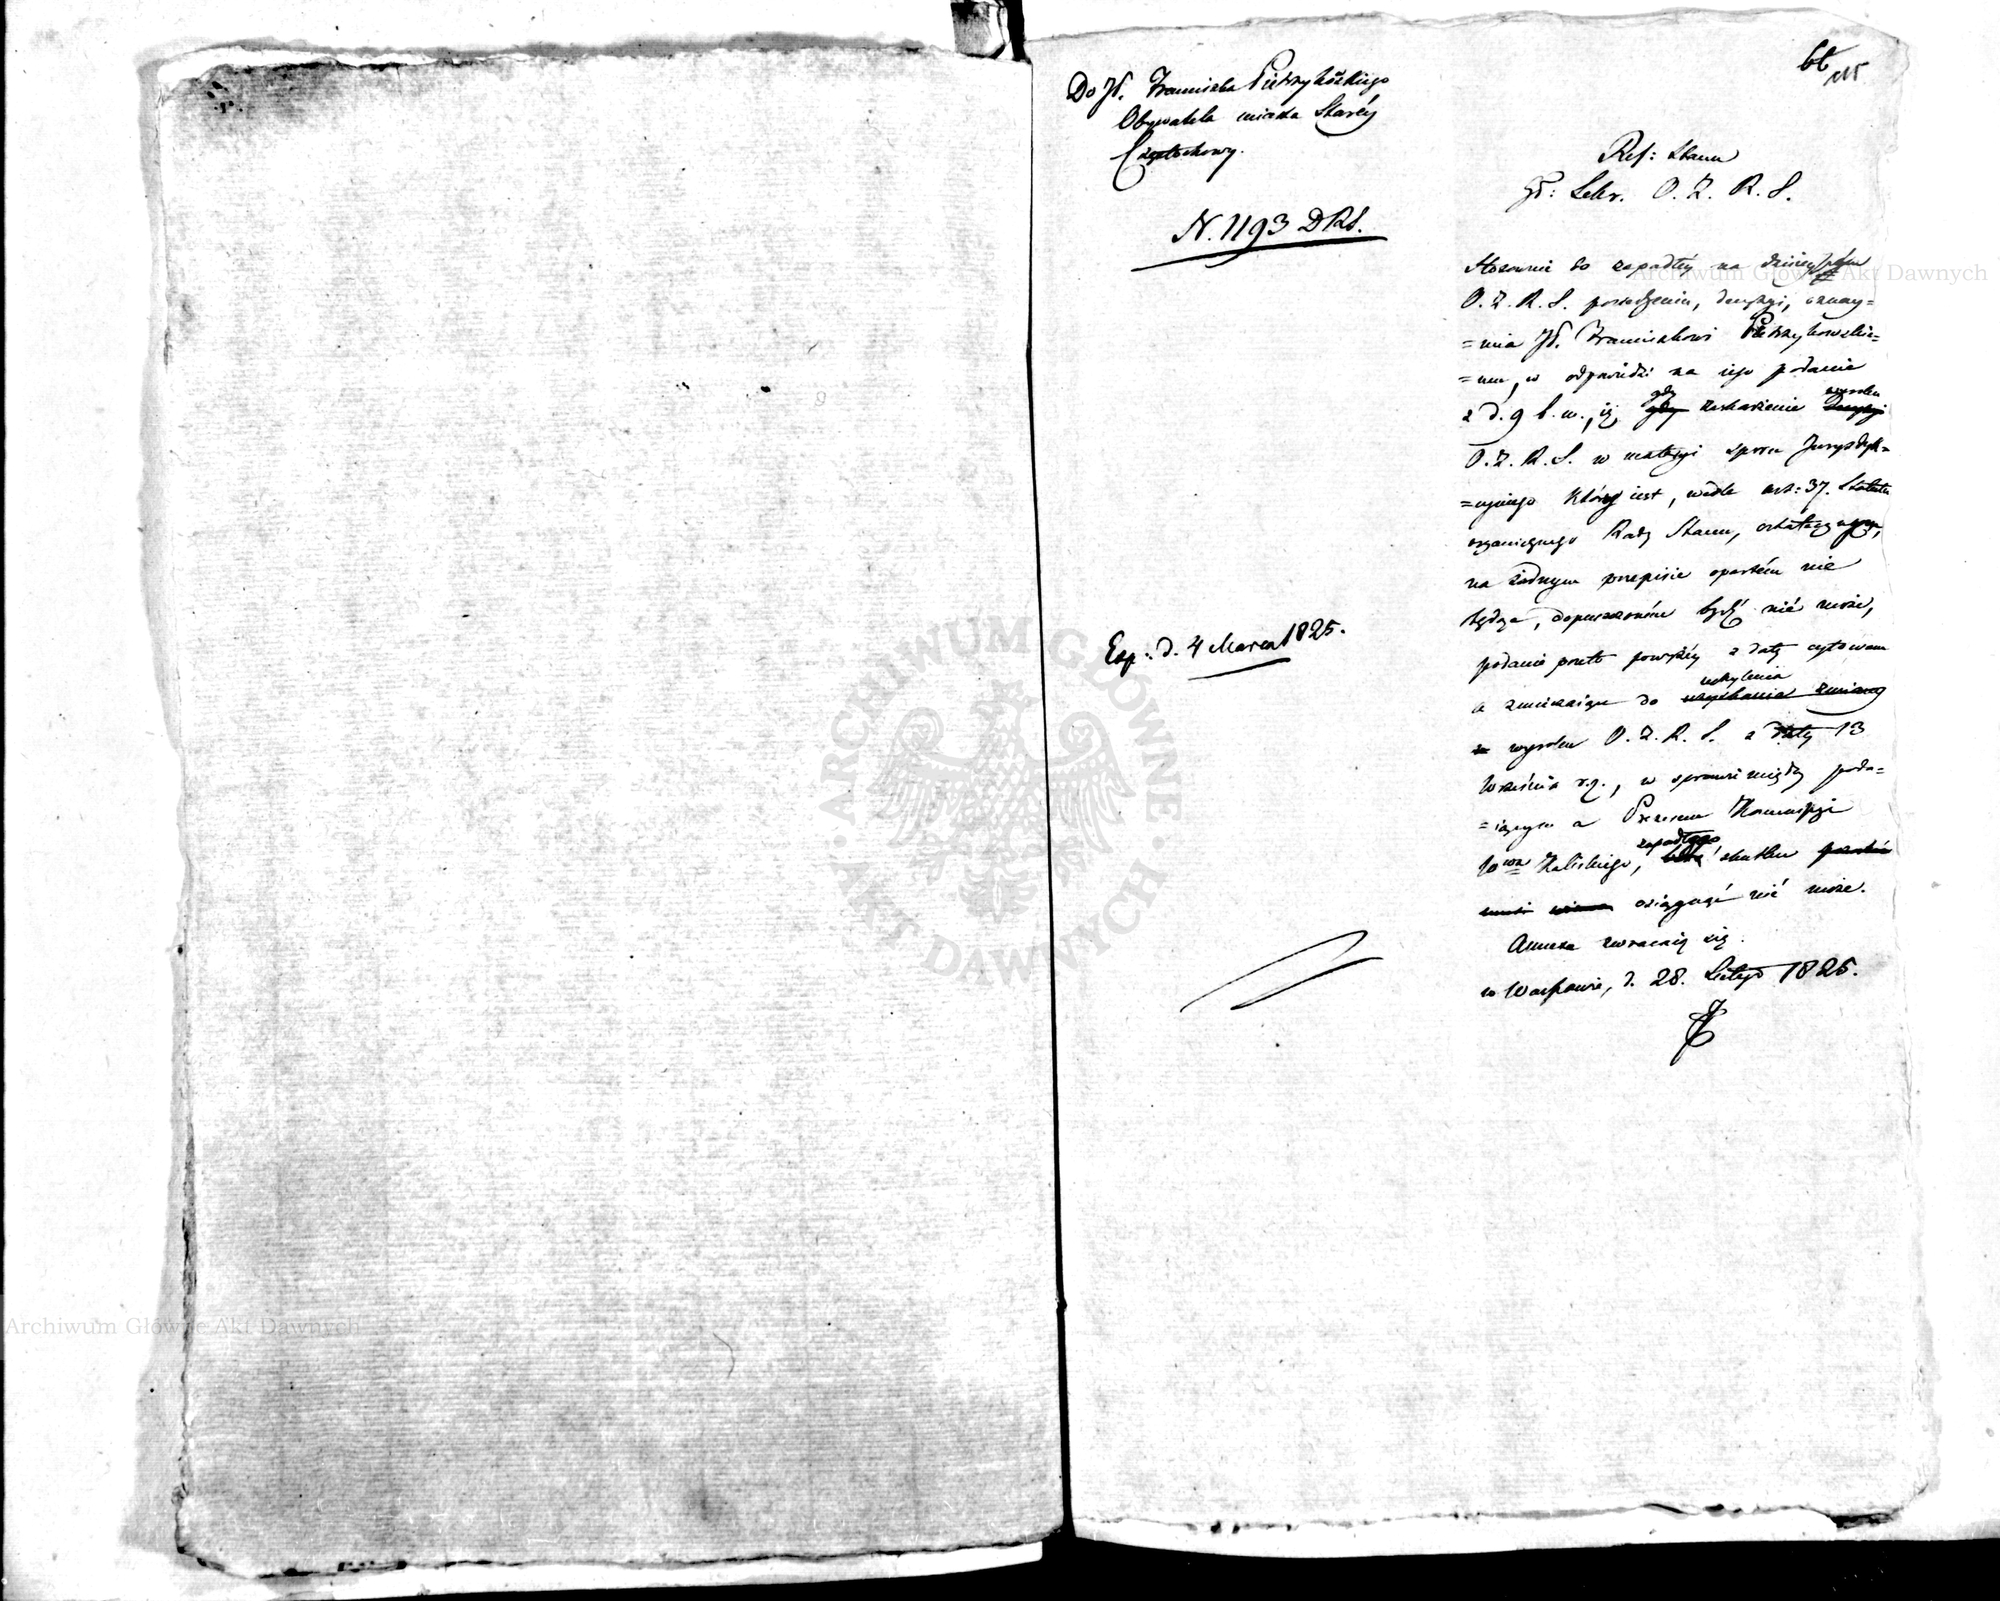 66
115
Do JP. Franciszka Pietrzykowskiego
Obywatela miasta Staréy
Częstochowy.
N. 1193 DRS.
Exp: d. 4 Marca 1825.
Ref: Stanu
Sekr. O. Z. R. S.
Stosownie do zapadłéy na dzisieyszém
O. Z. R. S. posiedzeniu, decyzyi, oznay=
=mia JP. Franciszkowi Pietrzykowskie=
=mu, w odpowiedzi na iego podanie
z d. 9 b. m., iż gdy gdy zaskarżenie wyroku Decyzyi
O. Z. R. S. w materyi sporu Juryzdyk=
=cyinego który iest, wedle art: 37. Statutu
organicznego Rady Stanu, ostatecznym,
na żadnym przepisie opartém nie
będąc, dopuszczoném bydź nié może,
podanie przeto powyżéy z daty cytowane
a zmierzaiące do uchylenia uzyskania zmiany
wyroku O. Z. R. S. z daty 13
Września r. z., w sprawie między poda=
=iącym a Prezesem Kommissyi
Wwa Kaliskiego, zapadłego, skutku
osiągnąć nié może.
Annexa zwracaią się.
w Warszawie, d. 28. Lutego 1825.
ARCHIWUM GŁÓWNE AKT DAWNYCH
Archiwum Główne Akt Dawnych
Archiwum Główne Akt Dawnych